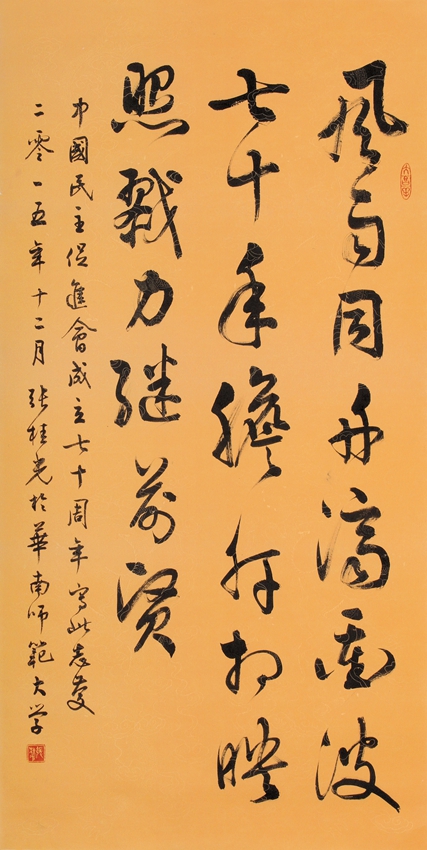 風雨同舟濟波
七十年膽肝相映
照戮力繼前賢
中國民主促進會成立七十周年寫此志慶
二零一五年十二月張桂光於華南師範大学